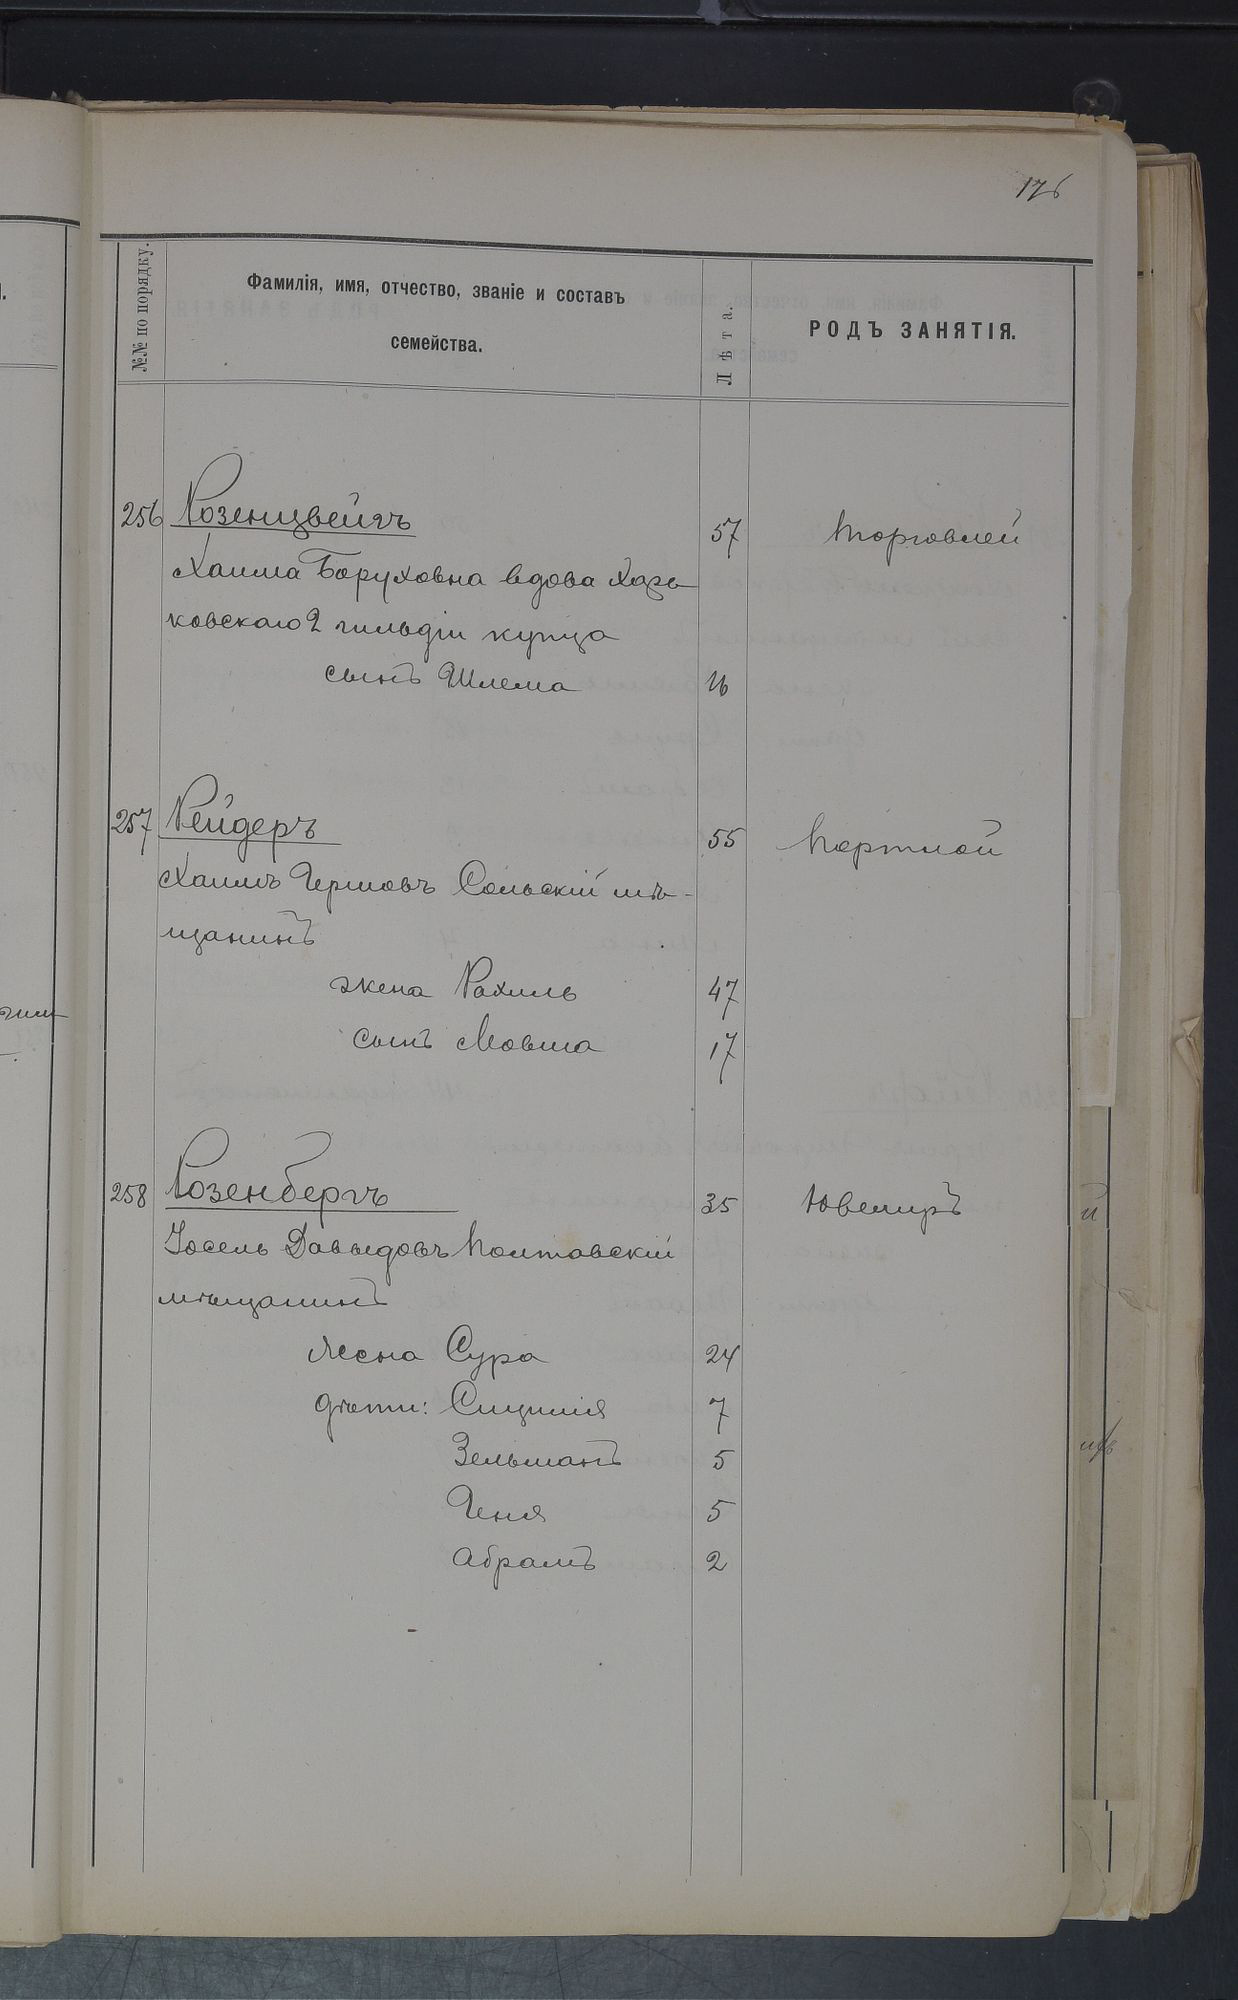 176
№№ по порядку.
Фамилія, имя, отчество, званіе и составъ
семейства.
Лѣта.
РОДЪ ЗАНЯТІЯ.
256 Розенцвейгъ 57 торговлей
Хаима Боруховна вдова Харь-
ковскаго 2 гильдіи купца
сынъ Шлема 16
257 Рейдеръ 55 портной
Хаимъ Гершовъ Сольскій мѣ-
щанинъ
жена Рахиль 47
сынъ Мовша 17
258 Розенбергъ 35 Ювелиръ
Іосель Давыдовъ Полтавскій
мѣщанинъ
жена Сура 24
дѣти: Сицилія 7
Зельманъ 5
Геня 5
Абрамъ 2